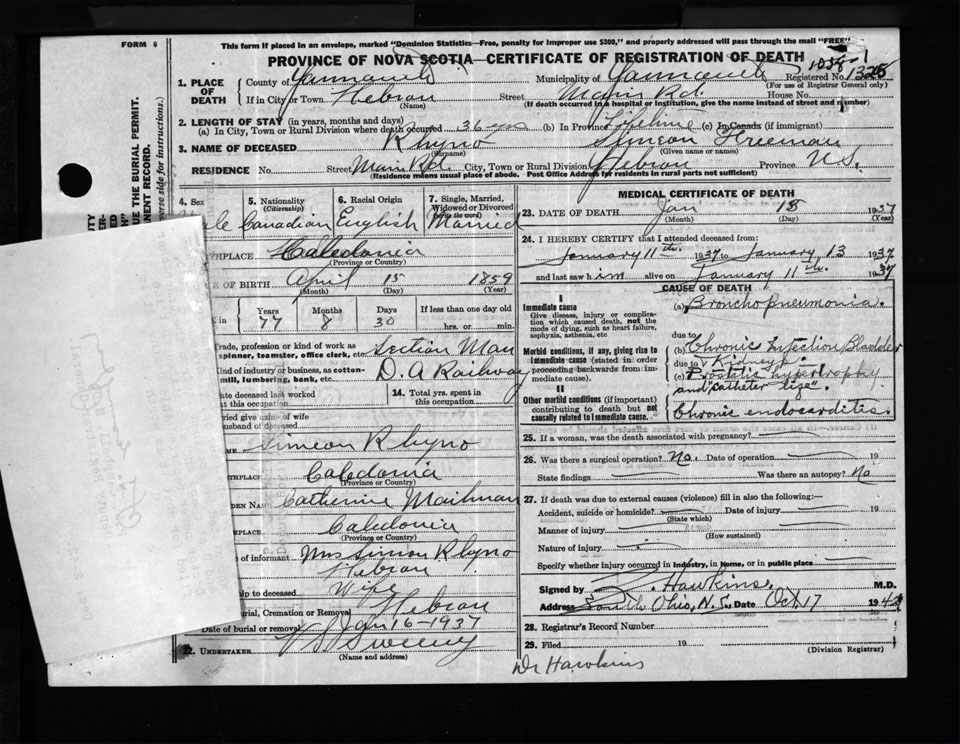 FORM 6
This form if placed in an envelope, marked "Dominion Statistics—Free, penalty for improper use $300," and properly addressed will pass through the mail "FREE"
PROVINCE OF NOVA SCOTIA—CERTIFICATE OF REGISTRATION OF DEATH
1. PLACE OF DEATH
County of Yarmouth Municipality of Yarmouth Registered No. 1325
(For use of Registrar General only)
If in City or Town Hebron Street Main Rd. House No.
(Name) (If death occurred in a hospital or institution, give the name instead of street and number)
2. LENGTH OF STAY (in years, months and days)
(a) In City, Town or Rural Division where death occurred 36 yrs (b) In Province Lifetime (c) In Canada (if immigrant)
3. NAME OF DECEASED Rhyno Simeon Freeman
(Surname) (Given name or names)
RESIDENCE No. Street Main Rd. City, Town or Rural Division Hebron Province N.S.
(Residence means usual place of abode. Post Office Address for residents in rural parts not sufficient)
4. Sex 5. Nationality (Citizenship) 6. Racial Origin 7. Single, Married, Widowed or Divorced (write the word)
ale Canadian English Married
THPLACE Caledonia
(Province or Country)
OF BIRTH April 15 1859
(Month) (Day) (Year)
E in Years Months Days If less than one day old
77 8 30 hrs. or min.
Trade, profession or kind of work as spinner, teamster, office clerk, etc. Section Man
Kind of industry or business, as cotton-mill, lumbering, bank, etc. D. A Railway
ate deceased last worked at this occupation 14. Total yrs. spent in this occupation
rried give name of wife
usband of deceased
ME Simeon Rhyno
THPLACE Caledonia
(Province or Country)
DEN NAME Catherine Mailman
PLACE Caledonia
(Province or Country)
of informant Mrs Simeon Rhyno
Hebron
hip to deceased Wife
urial, Cremation or Removal Hebron
Date of burial or removal Jan 16-1937
22. UNDERTAKER V S Sweeny
(Name and address)
MEDICAL CERTIFICATE OF DEATH
23. DATE OF DEATH Jan 15 1937
(Month) (Day) (Year)
24. I HEREBY CERTIFY that I attended deceased from:
January 11th. 1937 to January 13 1937
and last saw him alive on January 11th. 1937
CAUSE OF DEATH
I
Immediate cause (a) Bronchopneumonia.
Give disease, injury or complication which caused death, not the mode of dying, such as heart failure, asphyxia, asthenia, etc.
due to
Morbid conditions, if any, giving rise to immediate cause (stated in order proceeding backwards from immediate cause).
(b) Chronic Infection Bladder
due to & Kidneys.
(c) Prostatic hypertrophy
and "catheter life".
II
Other morbid conditions (if important) contributing to death but not causally related to immediate cause.
Chronic endocarditis.
25. If a woman, was the death associated with pregnancy?
26. Was there a surgical operation? No. Date of operation 19
State findings Was there an autopsy? No
27. If death was due to external causes (violence) fill in also the following:—
Accident, suicide or homicide? Date of injury 19
(State which)
Manner of injury
(How sustained)
Nature of injury
Specify whether injury occurred in Industry, in Home, or in public place
Signed by Hawkins. M.D.
Address South Ohio, N.S. Date Oct 17 194
28. Registrar's Record Number
29. Filed 19
(Division Registrar)
Dr Hawkins